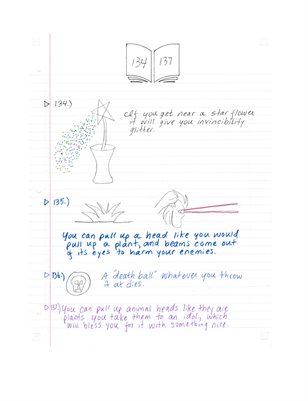 134 137
134.) If you get near a star flower
it will give you invincibility
glitter.
135.)
You can pull up a head like you would
pull up a plant, and beams come out
of its eyes to harm your enemies.
136.) A "death ball" whatever you throw it
at dies.
137.) You can pull up animal heads like they are
plants you take them to an idol, which
will bless you for it with something nice.